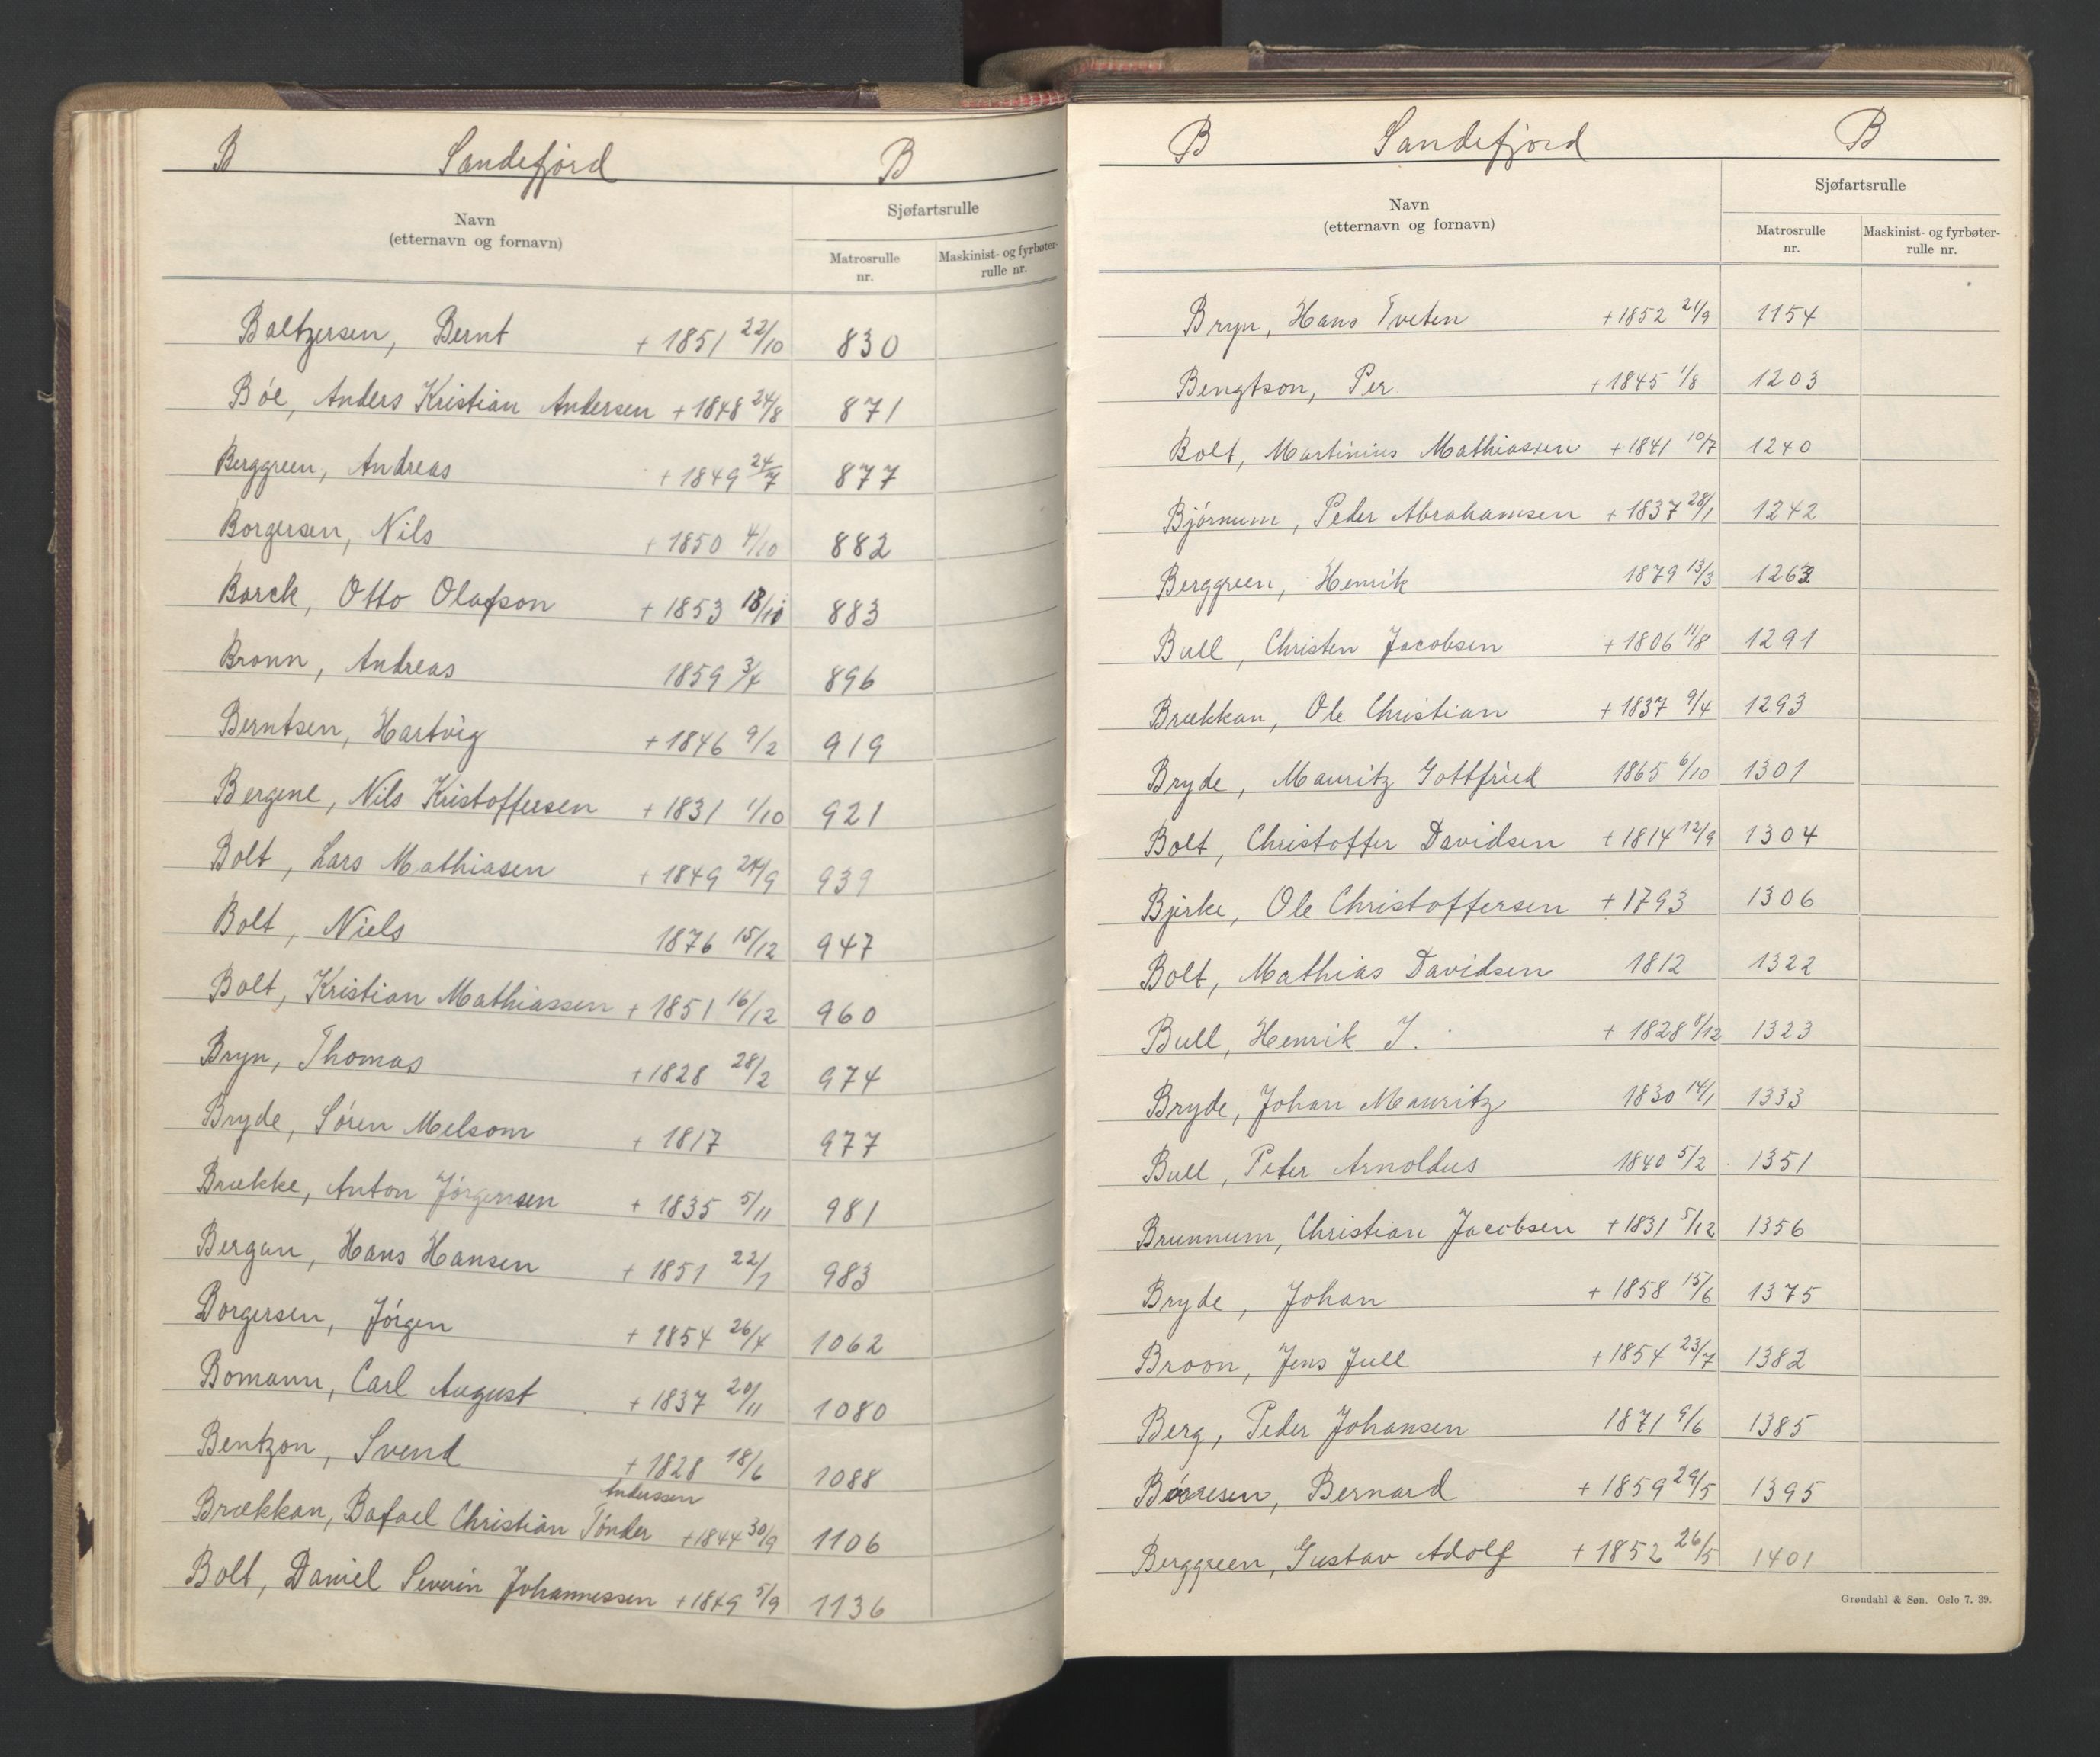 B Sandefjord B
Navn
(etternavn og fornavn)
Sjøfartsrulle
Matrosrulle
nr.
Maskinist- og fyrbøter-
rulle nr.
Baltzersen, Bernt + 1851 22/10 830
Bóe, Anders Kristian Andersen + 1848 24/8 871
Berggreen, Andreas + 1849 24/7 877
Borgersen, Nils + 1850 4/10 882
Barck, Otto Olafson + 1853 18/10 883
Bronn, Andreas 1859 3/4 896
Berntsen, Hartvig + 1846 9/2 919
Bergene, Nils Kristoffersen + 1831 1/10 921
Bolt, Lars Mathiasen + 1849 24/9 939
Bolt, Niels 1876 15/12 947
Bolt, Kristian Mathiassen + 1851 16/12 960
Bryn, Thomas + 1828 28/2 974
Bryde, Sóren Melsom + 1817 977
Brække, Anton Jórgensen + 1835 5/11 981
Bergan, Hans Hansen + 1851 22/1 983
Borgersen, Jórgen + 1854 26/4 1062
Bomann, Carl August + 1837 20/11 1080
Bentzon, Svend + 1828 18/6 1088
Anderssen
Brækkan, Bafael Christian Tónder + 1844 30/9 1106
Bolt, Daniel Severin Johannessen + 1849 5/9 1136
B Sandefjord B
Navn
(etternavn og fornavn)
Sjøfartsrulle
Matrosrulle
nr.
Maskinist- og fyrbøter-
rulle nr.
Bryn, Hans Tveten + 1852 21/9 1154
Bengtson, Per + 1845 1/8 1203
Bolt, Martinius Mathiassen + 1841 10/7 1240
Bjórnum, Peder Abrahamsen + 1837 28/1 1242
Berggreen, Henrik 1879 13/3 1263
Bull, Christen Jacobsen + 1806 11/8 1291
Brækkan, Ole Christian + 1837 9/4 1293
Bryde, Mauritz Gottfried 1865 6/10 1301
Bolt, Christoffer Davidsen + 1814 12/9 1304
Bjerke, Ole Christoffersen + 1793 1306
Bolt, Mathias Davidsen 1812 1322
Bull, Henrik J. + 1828 8/12 1323
Bryde, Johan Mauritz 1830 14/1 1333
Bull, Peter Arnoldus 1840 5/2 1351
Brunnum, Christian Jacobsen + 1831 5/12 1356
Bryde, Johan + 1858 15/6 1375
Broon, Jens Jull + 1854 23/7 1382
Berg, Peder Johansen 1871 9/6 1385
Bórresen, Bernard + 1859 29/5 1395
Berggreen, Gustav Adolf + 1852 26/5 1401
Grøndahl & Søn. Oslo 7. 39.